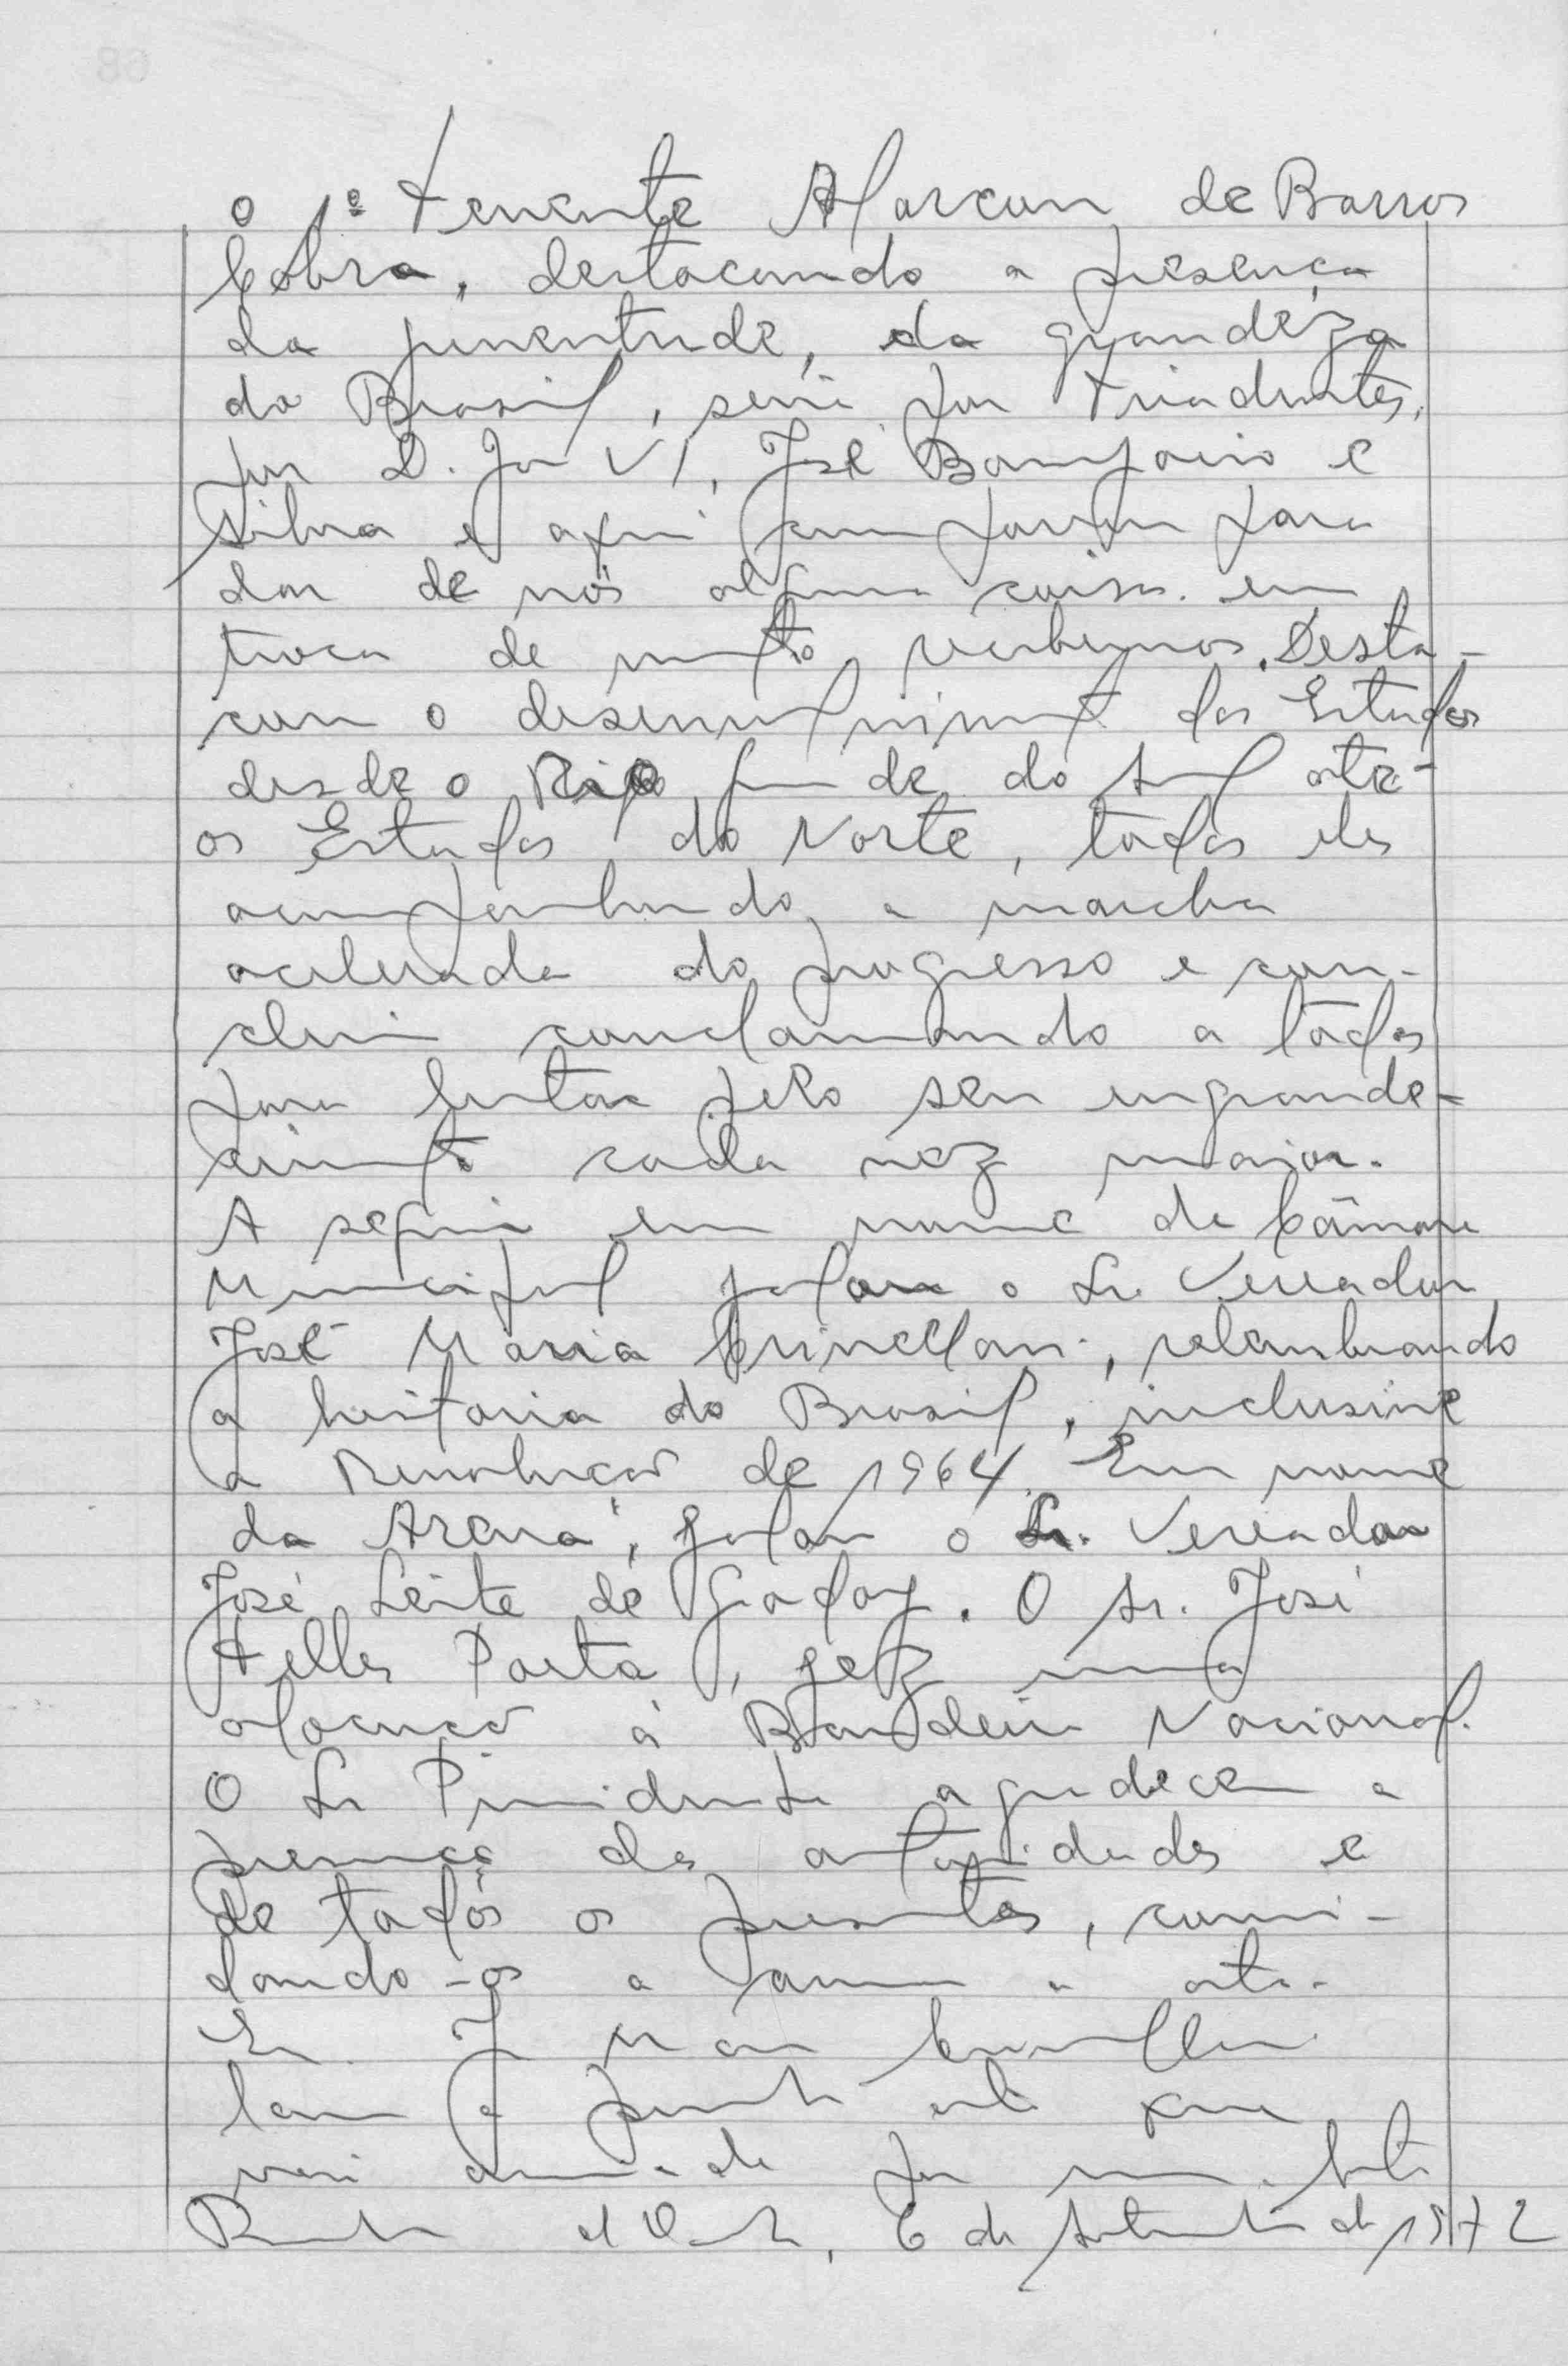 o 1º tenente Alarcon de Barros
Cobra, destacando a presença
da juventude, da grandeza
do Brasil, por Tiradentes,
por D. João VI, José Bonifacio e
Silva e aqui para
dar de nós alguma coisa em
troca de muito recebemos. Desta-
cou o desenvolvimento dos Estados
desde o Rio Grande do Sul até
os Estados do Norte, todos eles
acompanhando a marcha
acelerada do progresso e con-
cluiu conclamando a todos
para lutar pelo seu engrande-
cimento cada vez maior.
A seguir em nome da Câmara
Municipal falou o Sr. Vereador
José Maria relembrando
a historia do Brasil, inclusive
a Revolução de 1964. Em nome
da Arena, falou o Sr. Vereador
José Leite de Godoy. O Sr. José
Telles Porta, fez uma
alocução à Bandeira Nacional.
O Sr Presidente agradeceu a
presença das autoridades e
de todos os presentes, convi-
dando-os a a ata.
Eu J Maria
lavrei a presente ata que
vai assinada por mim.
6 de Setembro de 1972